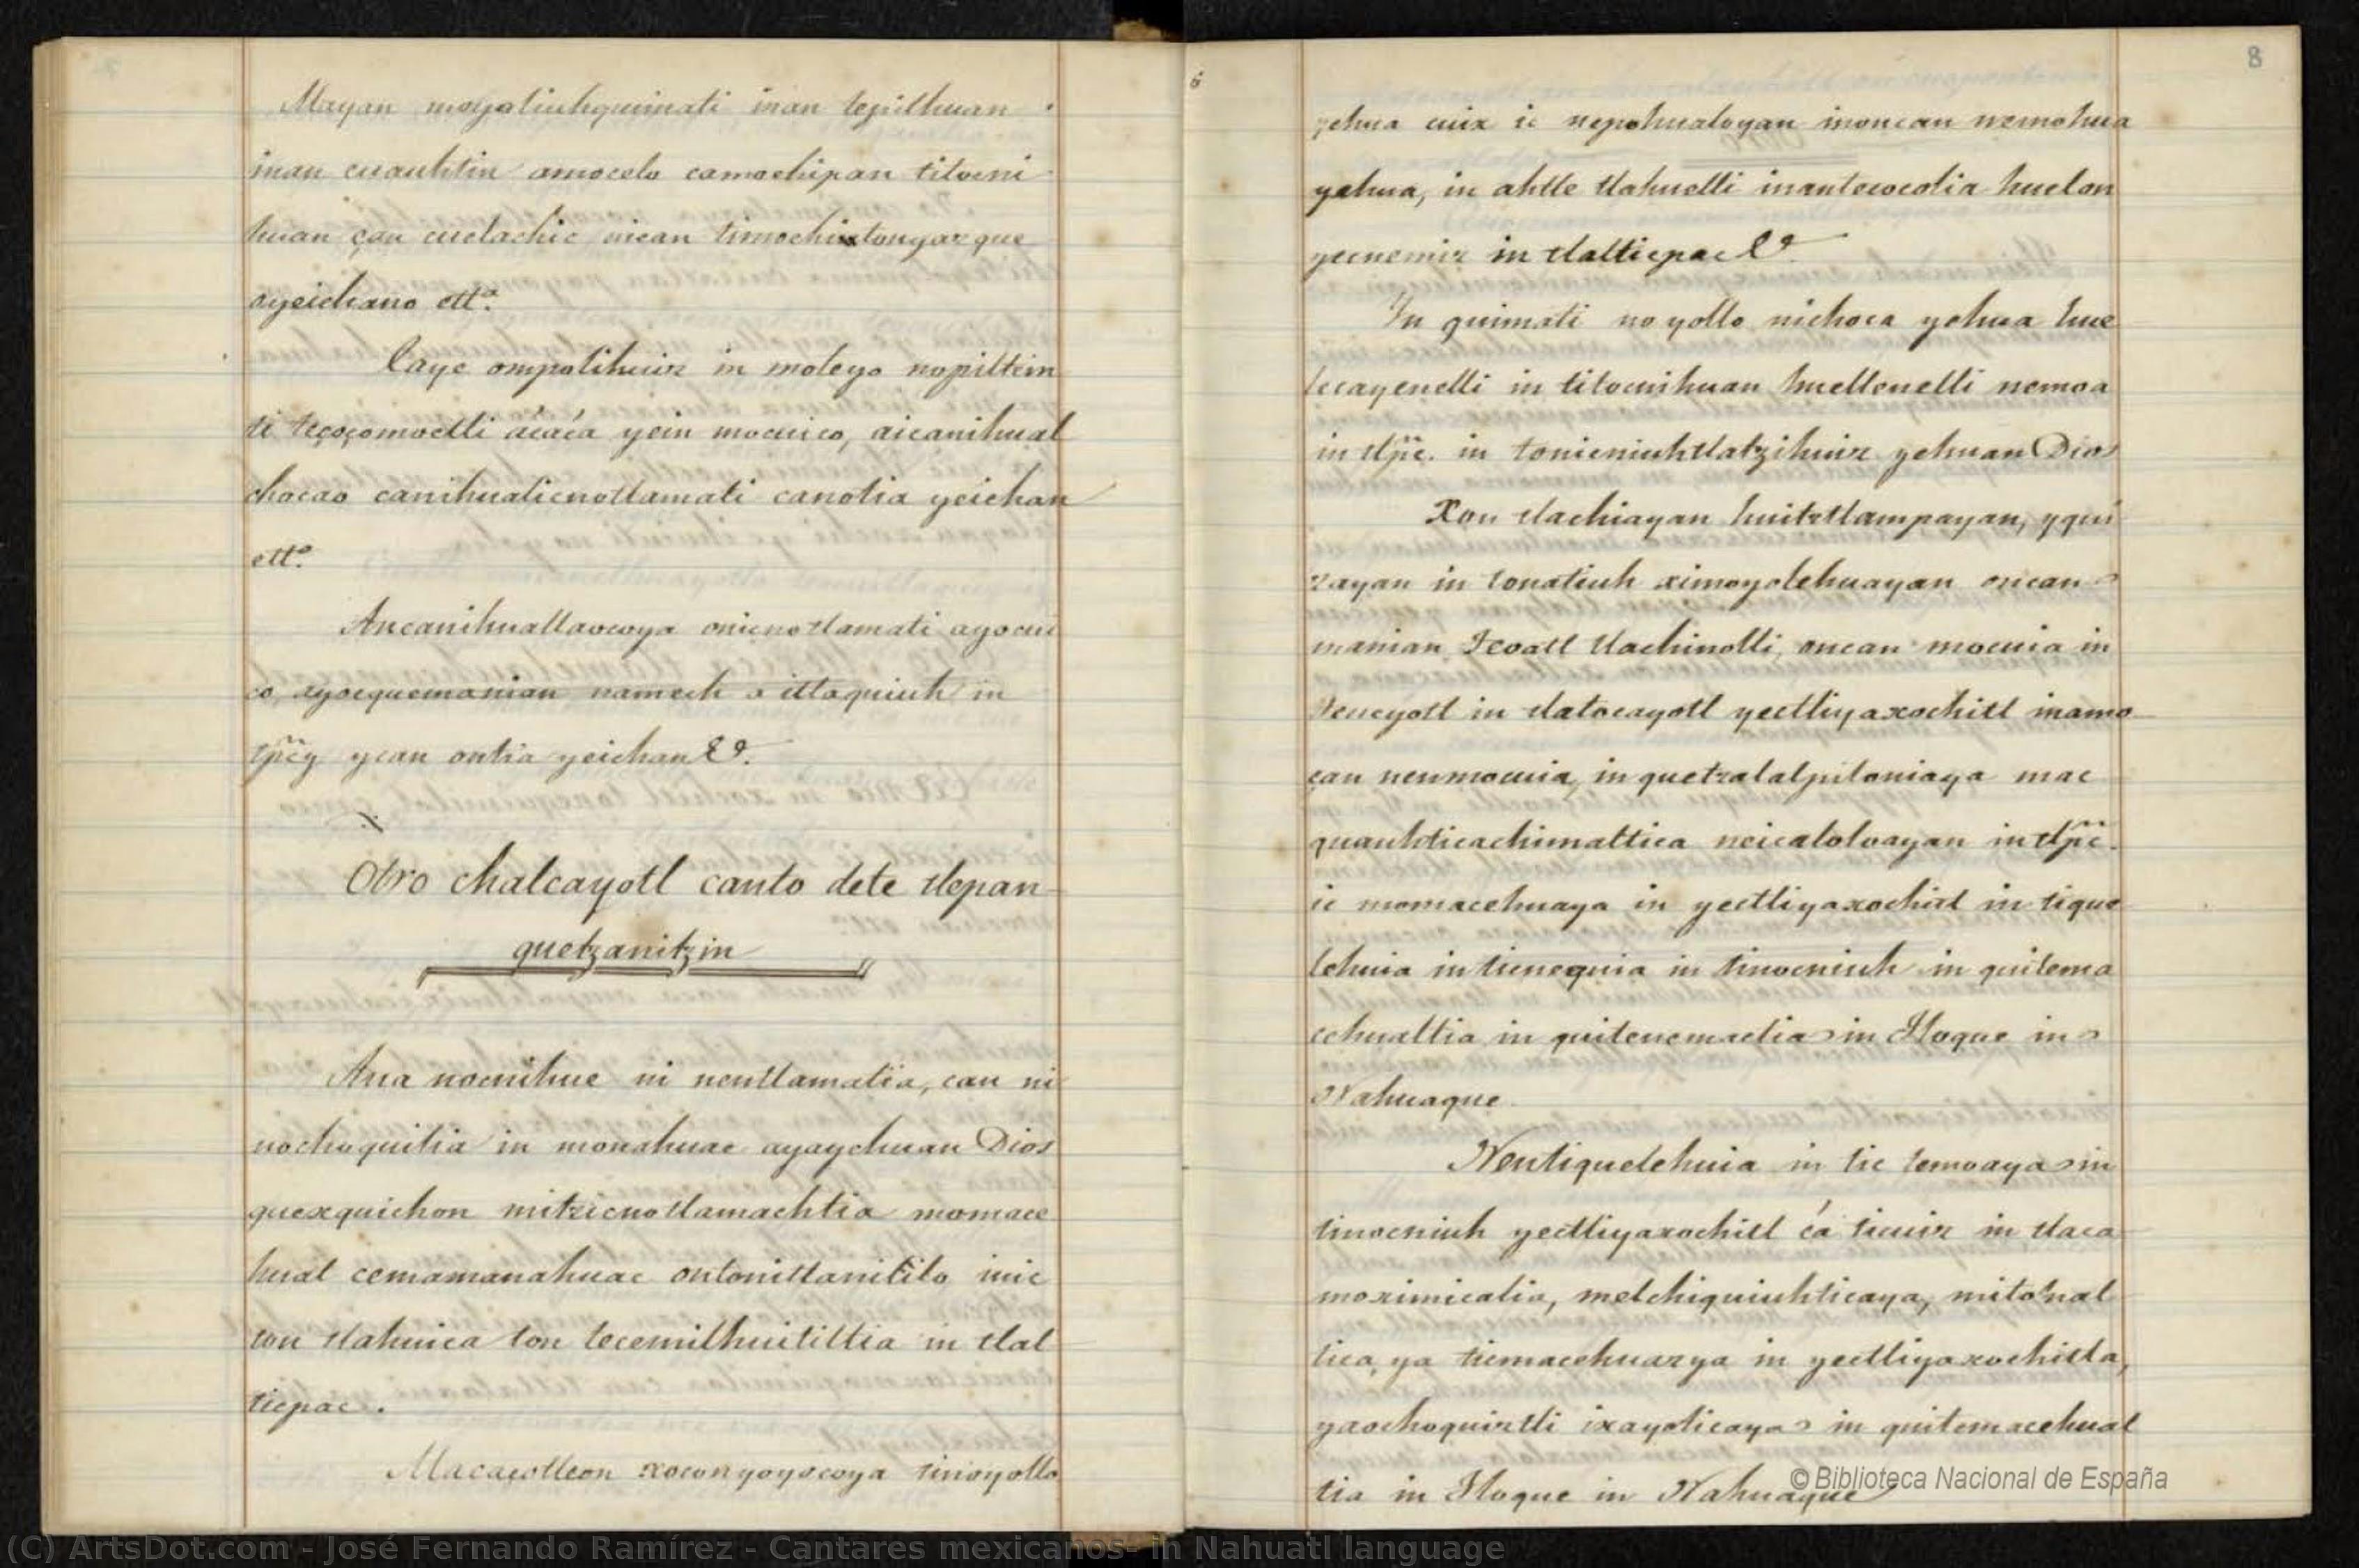 Mayan moyoliuhquimati inan tepilhuan
inan cuauhtin amocelo camochipan titocni
huan çan cuelachic nican timochixtonyazque
oyeichano ettª.
Caye ompolihuiz in moteyo nopiltzin
ti teçoçomoctli acaca yein mocuico, aicanihual
chocao canihualicnotlamati canotia yeichan
ettª
Ancanihuallaocoya onicnotlamati ayoccui
co, ayocquemanian namech o ittaquiuh in
tp̃cq ycan ontia yeichan &ª.
Otro chalcayotl canto dete tlepan
quetzanitzin
Aua nocnihue ni nentlamatia, çan ni
nochoquilia in monahuac ayayehuan Dios
quexquichon mitzicnotlamachtia momace
hual cemamanahuac ontonitlanililo inic
ton tlahuica ton tecemilhuitiltia in tlal
ticpac.
Macaçotleon xoconyoyocoya tinoyollo
6
8
yehua cuix ic nepohualoyan inoncan nemohua
yehua, in ahtle tlahuelli inantecocolia huelon
yecnemiz in tlalticpac &ª
In quimati no yollo nichoca yehua hue
lecayenelli in titocnihuan huellenelli nemoa
in tlp̃c. in tonicniuhtlatzihuiz yehuan Dios
Xon tlachiayan huitztlampayan, yqui
zayan in tonatiuh ximoyolehuayan oncan
manian teoatl tlachinolli, oncan mocuia in
teucyotl in tlatocayotl yectliyaxochitl inamo
çan nenmocuia, in quetzalalpiloniaya mac
quauhticachimaltica neicaloloayan in tlp̃c.
ic momacehuaya in yectliyaxochitl in tique
lehuia in ticnequia in tinocniuh in quitema
cehualtia in quitenemactia in Tloque in
Nahuaque
Nentiquelehuia in tic temoaya in
tinocniuh yectliyaxochitl cá ticuiz in tlaca
moximicalia, melchiquiuhticaya, mitonal
tica, ya ticmacehuazya in yectliyaxochitla,
yaochoquiztli ixayoticaya in quitemacehual
tia in Tloque in Nahuaque
© Biblioteca Nacional de España
(C) ArtsDot.com - José Fernando Ramírez - Cantares mexicanos- in Nahuatl language